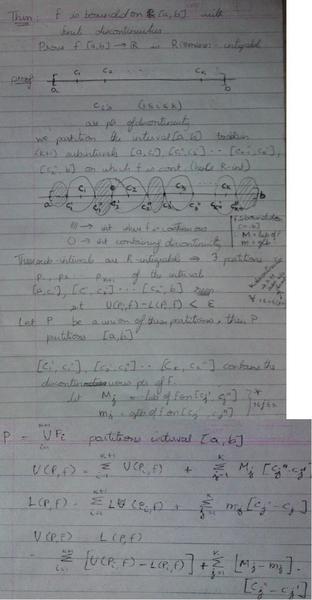 Thm f is bounded on [a,b] with
finit discontinuities
Prove f [a,b] → R is Riemann-integrable
proof
a c₁ c₂ cₖ b
cᵢ's (1≤i≤k)
are pt of discontinuity
we partition the interval [a,b] to
(k+1) subintervals [a,c₁'], [c₁'',c₂']
on which f is cont. (hence R-int)
a c₁ c₂ c₃ cₖ b
→ set where f is continuous
→ set containing discontinuity
f is bounded on
[a,b]
M = lub of f
m = glb
These sub-intervals are R-integrable ⇒ ∃ partitions
P₁, P₂ Pₖ₊₁ of the interval
st U(Pᵢ,f) - L(Pᵢ,f) < ε
Let P be a union of these partitions, then P
partitions [a,b]
[c₁',c₁''], [c₂',c₂''] [cₖ',cₖ''] contains the
discontinuous pts of f.
let Mⱼ = lub of f on [cⱼ',cⱼ'']
mⱼ = glb of f on [cⱼ',cⱼ'']
1≤j≤k
P = ∪ᵢ₌₁ᵏ⁺¹ Pᵢ partitions interval [a,b]
U(P,f) = Σᵢ₌₁ᵏ⁺¹ U(Pᵢ,f) + Σⱼ₌₁ᵏ Mⱼ [cⱼ''-cⱼ']
L(P,f) = Σᵢ₌₁ᵏ⁺¹ L(Pᵢ,f) + Σⱼ₌₁ᵏ mⱼ [cⱼ''-cⱼ']
U(P,f) L(P,f)
= Σᵢ₌₁ᵏ⁺¹ [U(Pᵢ,f) - L(Pᵢ,f)] + Σⱼ₌₁ᵏ [Mⱼ-mⱼ].
[cⱼ''-cⱼ']